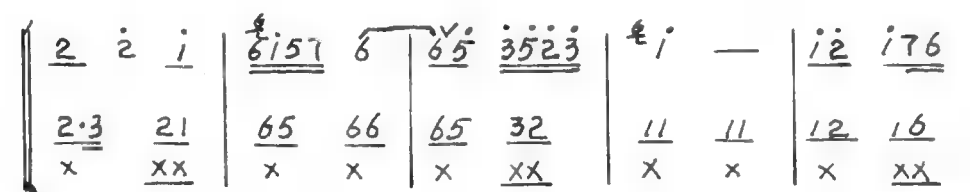 2 2̇ i̇ | 6i̇57 6 | 65̇ 3̇5̇2̇3̇ | i̇ — | i̇2̇ i̇76
2·3 21 | 65 66 | 65 32 | 11 11 | 12 16
x xx | x x | x xx | x x | x xx